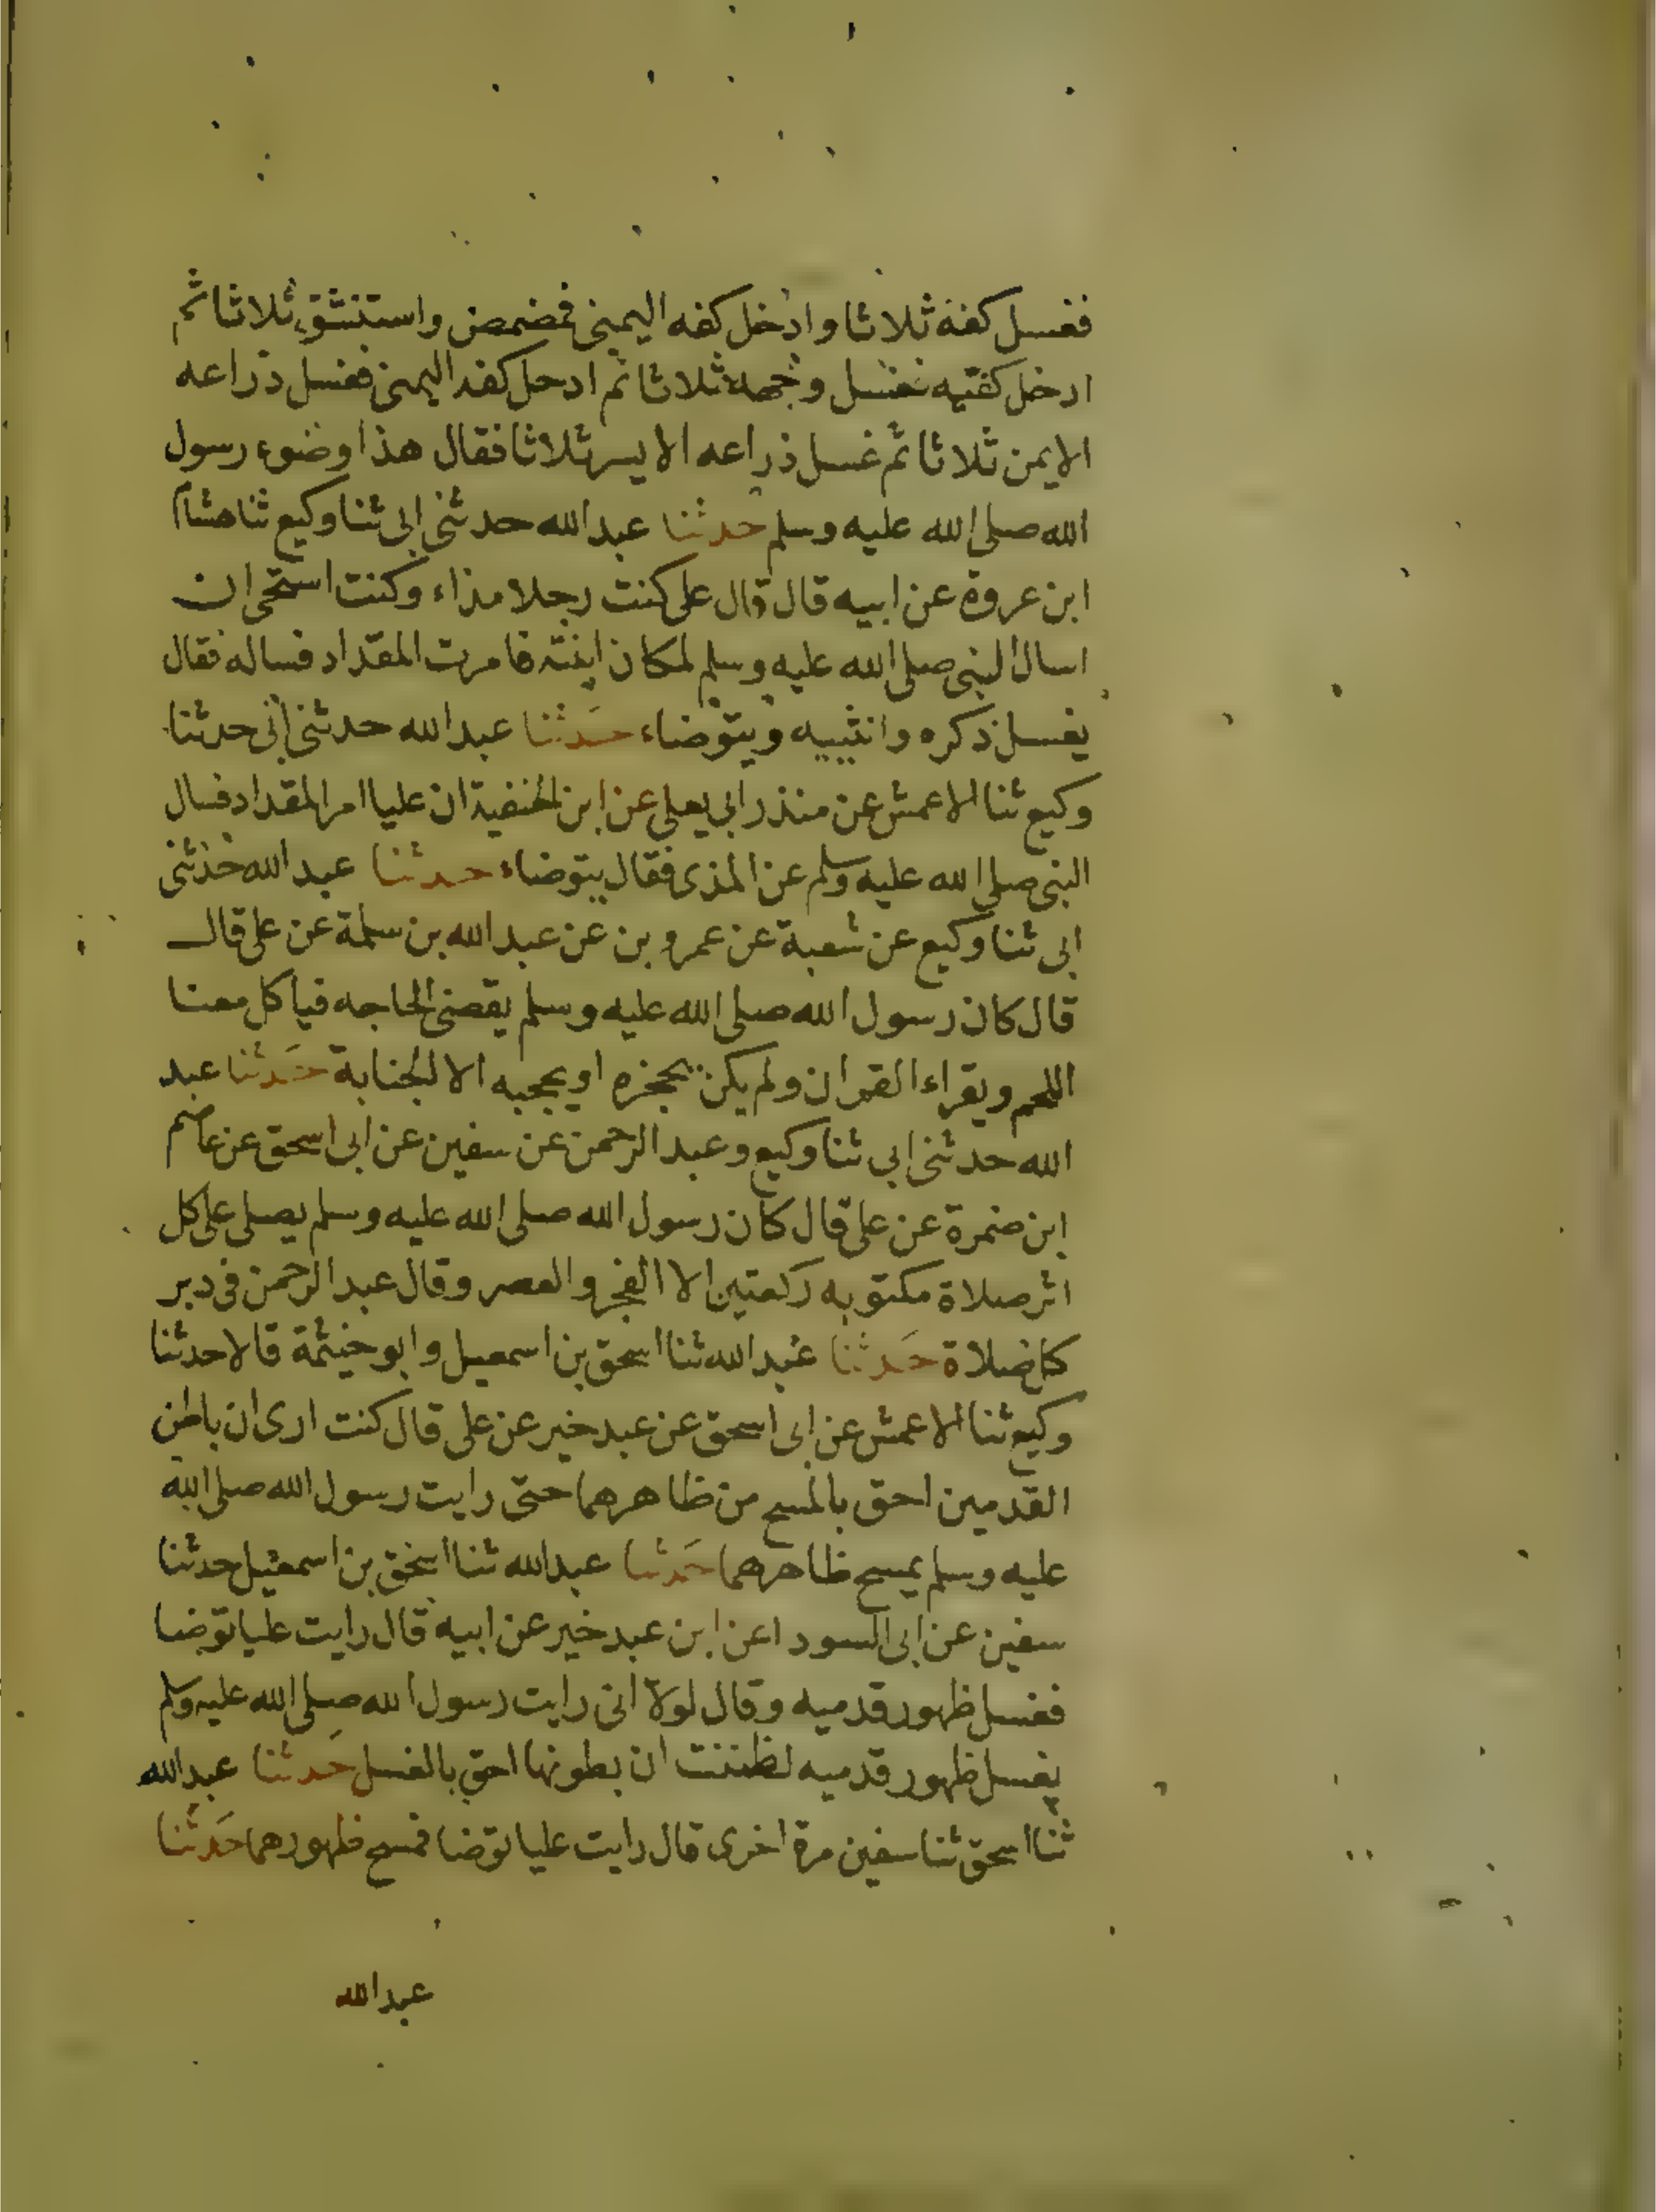 فغسل كفه ثلاثا وادخل كفه اليمنى فمضمض واستنشق ثلاثا ثم
ادخل كفيه فغسل وجهه ثلاثا ثم ادخل كفه اليمنى فغسل ذراعه
الايمن ثلاثا ثم غسل ذراعه الايسر ثلاثا فقال هذا وضوء رسول
الله صلى الله عليه وسلم حدثنا عبد الله حدثني ابي ثنا وكيع ثنا هشام
ابن عروة عن ابيه قال قال علي كنت رجلا مذاء وكنت استحي ان
اسال النبي صلى الله عليه وسلم لمكان ابنته فامرت المقداد فساله فقال
يغسل ذكره وانثييه ويتوضاء حدثنا عبد الله حدثني ابي حدثنا
وكيع ثنا الاعمش عن منذر ابي يعلى عن ابن الحنفية ان عليا امر المقداد فسال
النبي صلى الله عليه وسلم عن المذي فقال يتوضاء حدثنا عبد الله حدثني
ابي ثنا وكيع عن شعبة عن عمرو بن عن عبد الله بن سلمة عن علي قال
قال كان رسول الله صلى الله عليه وسلم يقضي الحاجه فياكل معنا
اللحم ويقراء القران ولم يكن يحجزه او يحجبه الا الجنابة حدثنا عبد
الله حدثني ابي ثنا وكيع وعبد الرحمن عن سفين عن ابي اسحق عن عاصم
ابن ضمرة عن علي قال كان رسول الله صلى الله عليه وسلم يصلي على كل
اثر صلاة مكتوبه ركعتين الا الفجر والعصر وقال عبد الرحمن في دبر
كل صلاة حدثنا عبد الله ثنا اسحق بن اسمعيل وابو خيثمة قالا حدثنا
وكيع ثنا الاعمش عن ابي اسحق عن عبد خير عن علي قال كنت ارى ان باطن
القدمين احق بالمسح من ظاهرهما حتى رايت رسول الله صلى الله
عليه وسلم يمسح ظاهرهما حدثنا عبد الله ثنا اسحق بن اسمعيل حدثنا
سفين عن ابي السودا عن ابن عبد خير عن ابيه قال رايت عليا توضا
فغسل ظهور قدميه وقال لولا اني رايت رسول الله صلى الله عليه وسلم
يغسل ظهور قدميه لظننت ان بطونها احق بالغسل حدثنا عبد الله
ثنا اسحق ثنا سفين مرة اخرى قال رايت عليا توضا فمسح ظهورهما حدثنا
عبد الله